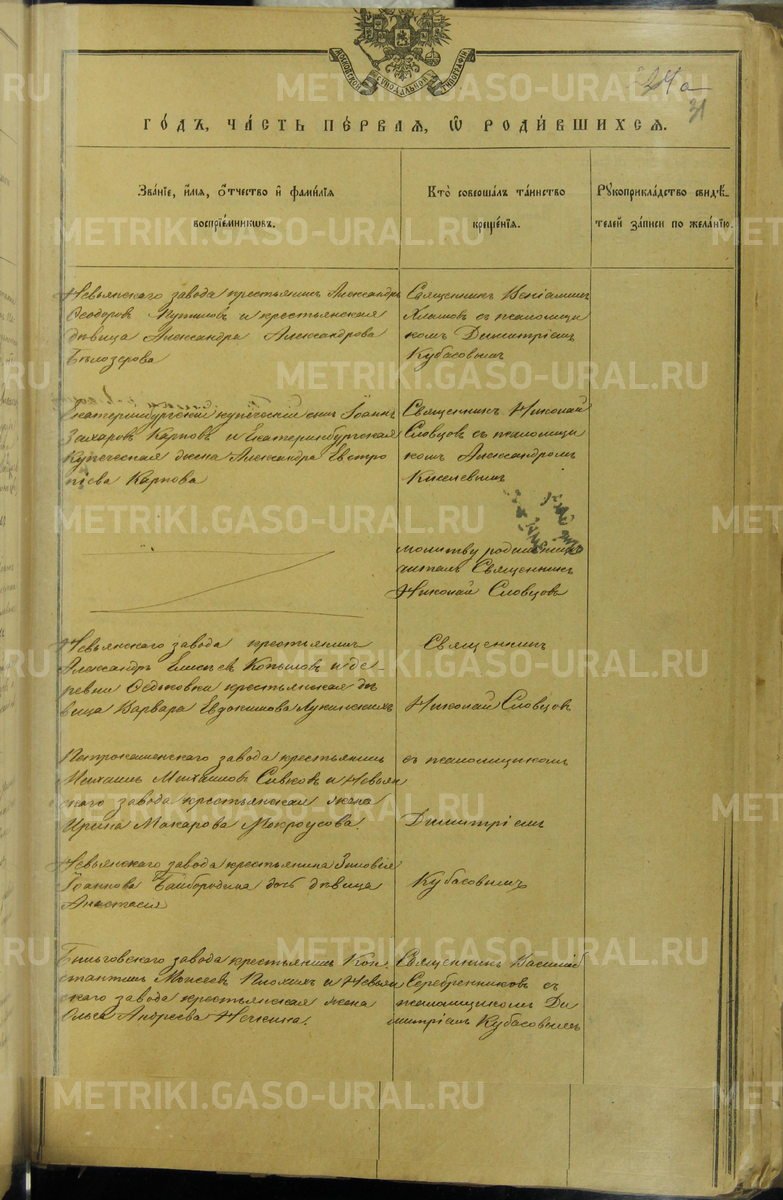 МОСКОВСКОЙ СѴНОДАЛЬНОЙ ТИПОГРАФІИ
24а
31
ГО́ДЪ, ЧА́СТЬ ПЕ́РВАѦ, Ѡ҆ РОДИ́ВШИХСѦ.
Зва́нїе, и҆́мѧ, ѻ҆́тчество и҆ фами́лїѧ
воспрїе́мникѡвъ.
Кто̀ соверша́лъ та́инство
креще́нїѧ.
Рꙋкоприкла́дство свидѣ́-
телей за́писи по жела́нїю.
Невьянскаго завода крестьянинъ Александръ
Ѳеодоров Путиловъ и крестьянская
дѣвица Александра Александрова
Бѣлозерова
Священникъ Веніаминъ
съ псаломщи
комъ Димитріемъ
Кубасовымъ
Екатеринбургскій купеческій сынъ Іоаннъ
Захаров Карповъ и Екатеринбургская
Купеческая жена Александра Евстро
піева Карпова
Священникъ Николай
Словцовъ съ псаломщи
комъ Александромъ
Киселевымъ
молитву родильницѣ
читалъ Священникъ
Николай Словцовъ
Невьянскаго завода крестьянинъ
Александръ Елисѣев Копыловъ и де-
ревни Ѳедьковки крестьянская дѣ
вица Варвара Евдокимова Лукинскихъ
Священникъ
Николай Словцовъ
Петрокаменскаго завода крестьянинъ
Михаилъ Михаиловъ Сивковъ и Невьян
скаго завода крестьянская жена
Ирина Макарова Мокроусова.
съ псаломщикомъ
Димитріемъ
Невьянскаго завода крестьянина Зиновія
Іоаннова Байбородина дочь дѣвица
Анастасія
Кубасовымъ
завода крестьянинъ Кон
стантинъ Моисеевъ и Невьян
скаго завода крестьянская жена
Ольга Андреева Нечкина.
Священникъ Василій
Серебренниковъ съ
псаломщикомъ Ди
митріемъ Кубасовымъ
METRIKI.GASO-URAL.RU